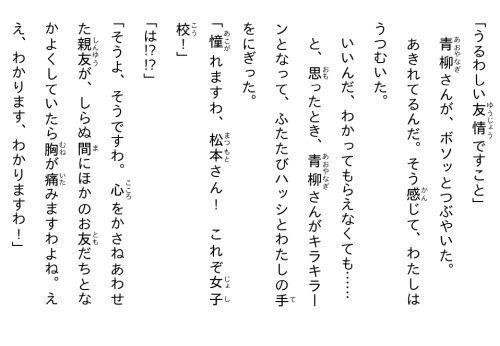 「うるわしい友情ですこと」
青柳さんが、ボソッとつぶやいた。
あきれてるんだ。そう感じて、わたしは
うつむいた。
いいんだ、わかってもらえなくても……
と、思ったとき、青柳さんがキラキラー
ンとなって、ふたたびハッシとわたしの手
をにぎった。
「憧れますわ、松本さん！　これぞ女子
校！」
「は!?⁇」
「そうよ、そうですわ。　心をかさねあわせ
た親友が、しらぬ間にほかのお友だちとな
かよくしていたら胸が痛みますわよね。え
え、わかります、わかりますわ！」